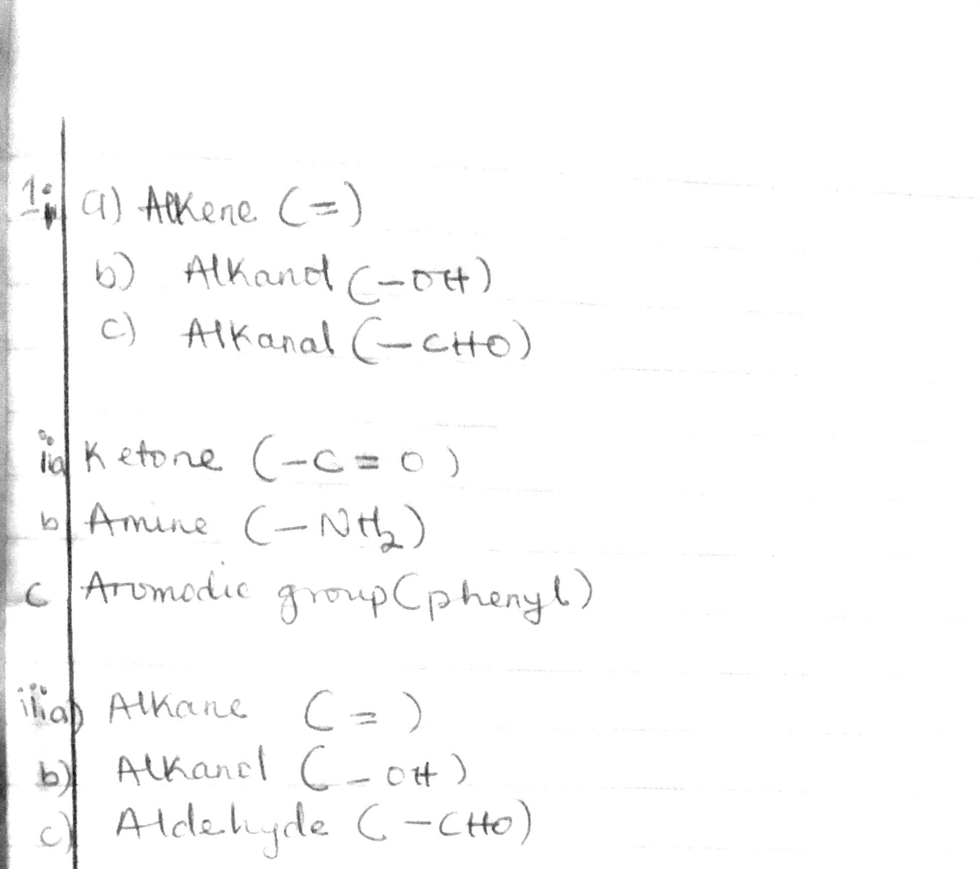 1i a) Alkene (=)
b) Alkanol (-OH)
c) Alkanal (-CHO)
iia Ketone (-C=O)
b Amine (-NH₂)
c Aromadic group (phenyl)
iiia) Alkane (=)
b) Alkanol (-OH)
c) Aldehyde (-CHO)